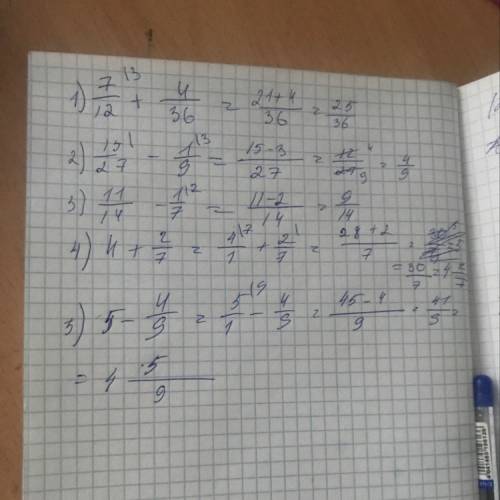 1) 7/12 \3 + 4/36 = 21+4/36 = 25/36
2) 15/27 \1 - 1/9 \3 = 15-3/27 = 12/27 4 9 = 4/9
3) 11/14 - 1/7 \2 = 11-2/14 = 9/14
4) 4 + 2/7 = 4/1 \7 + 2/7 \1 = 28+2/7 =
= 30/7 = 4 2/7
5) 5 - 4/9 = 5/1 \9 - 4/9 = 45-4/9 = 41/9 =
= 4 5/9